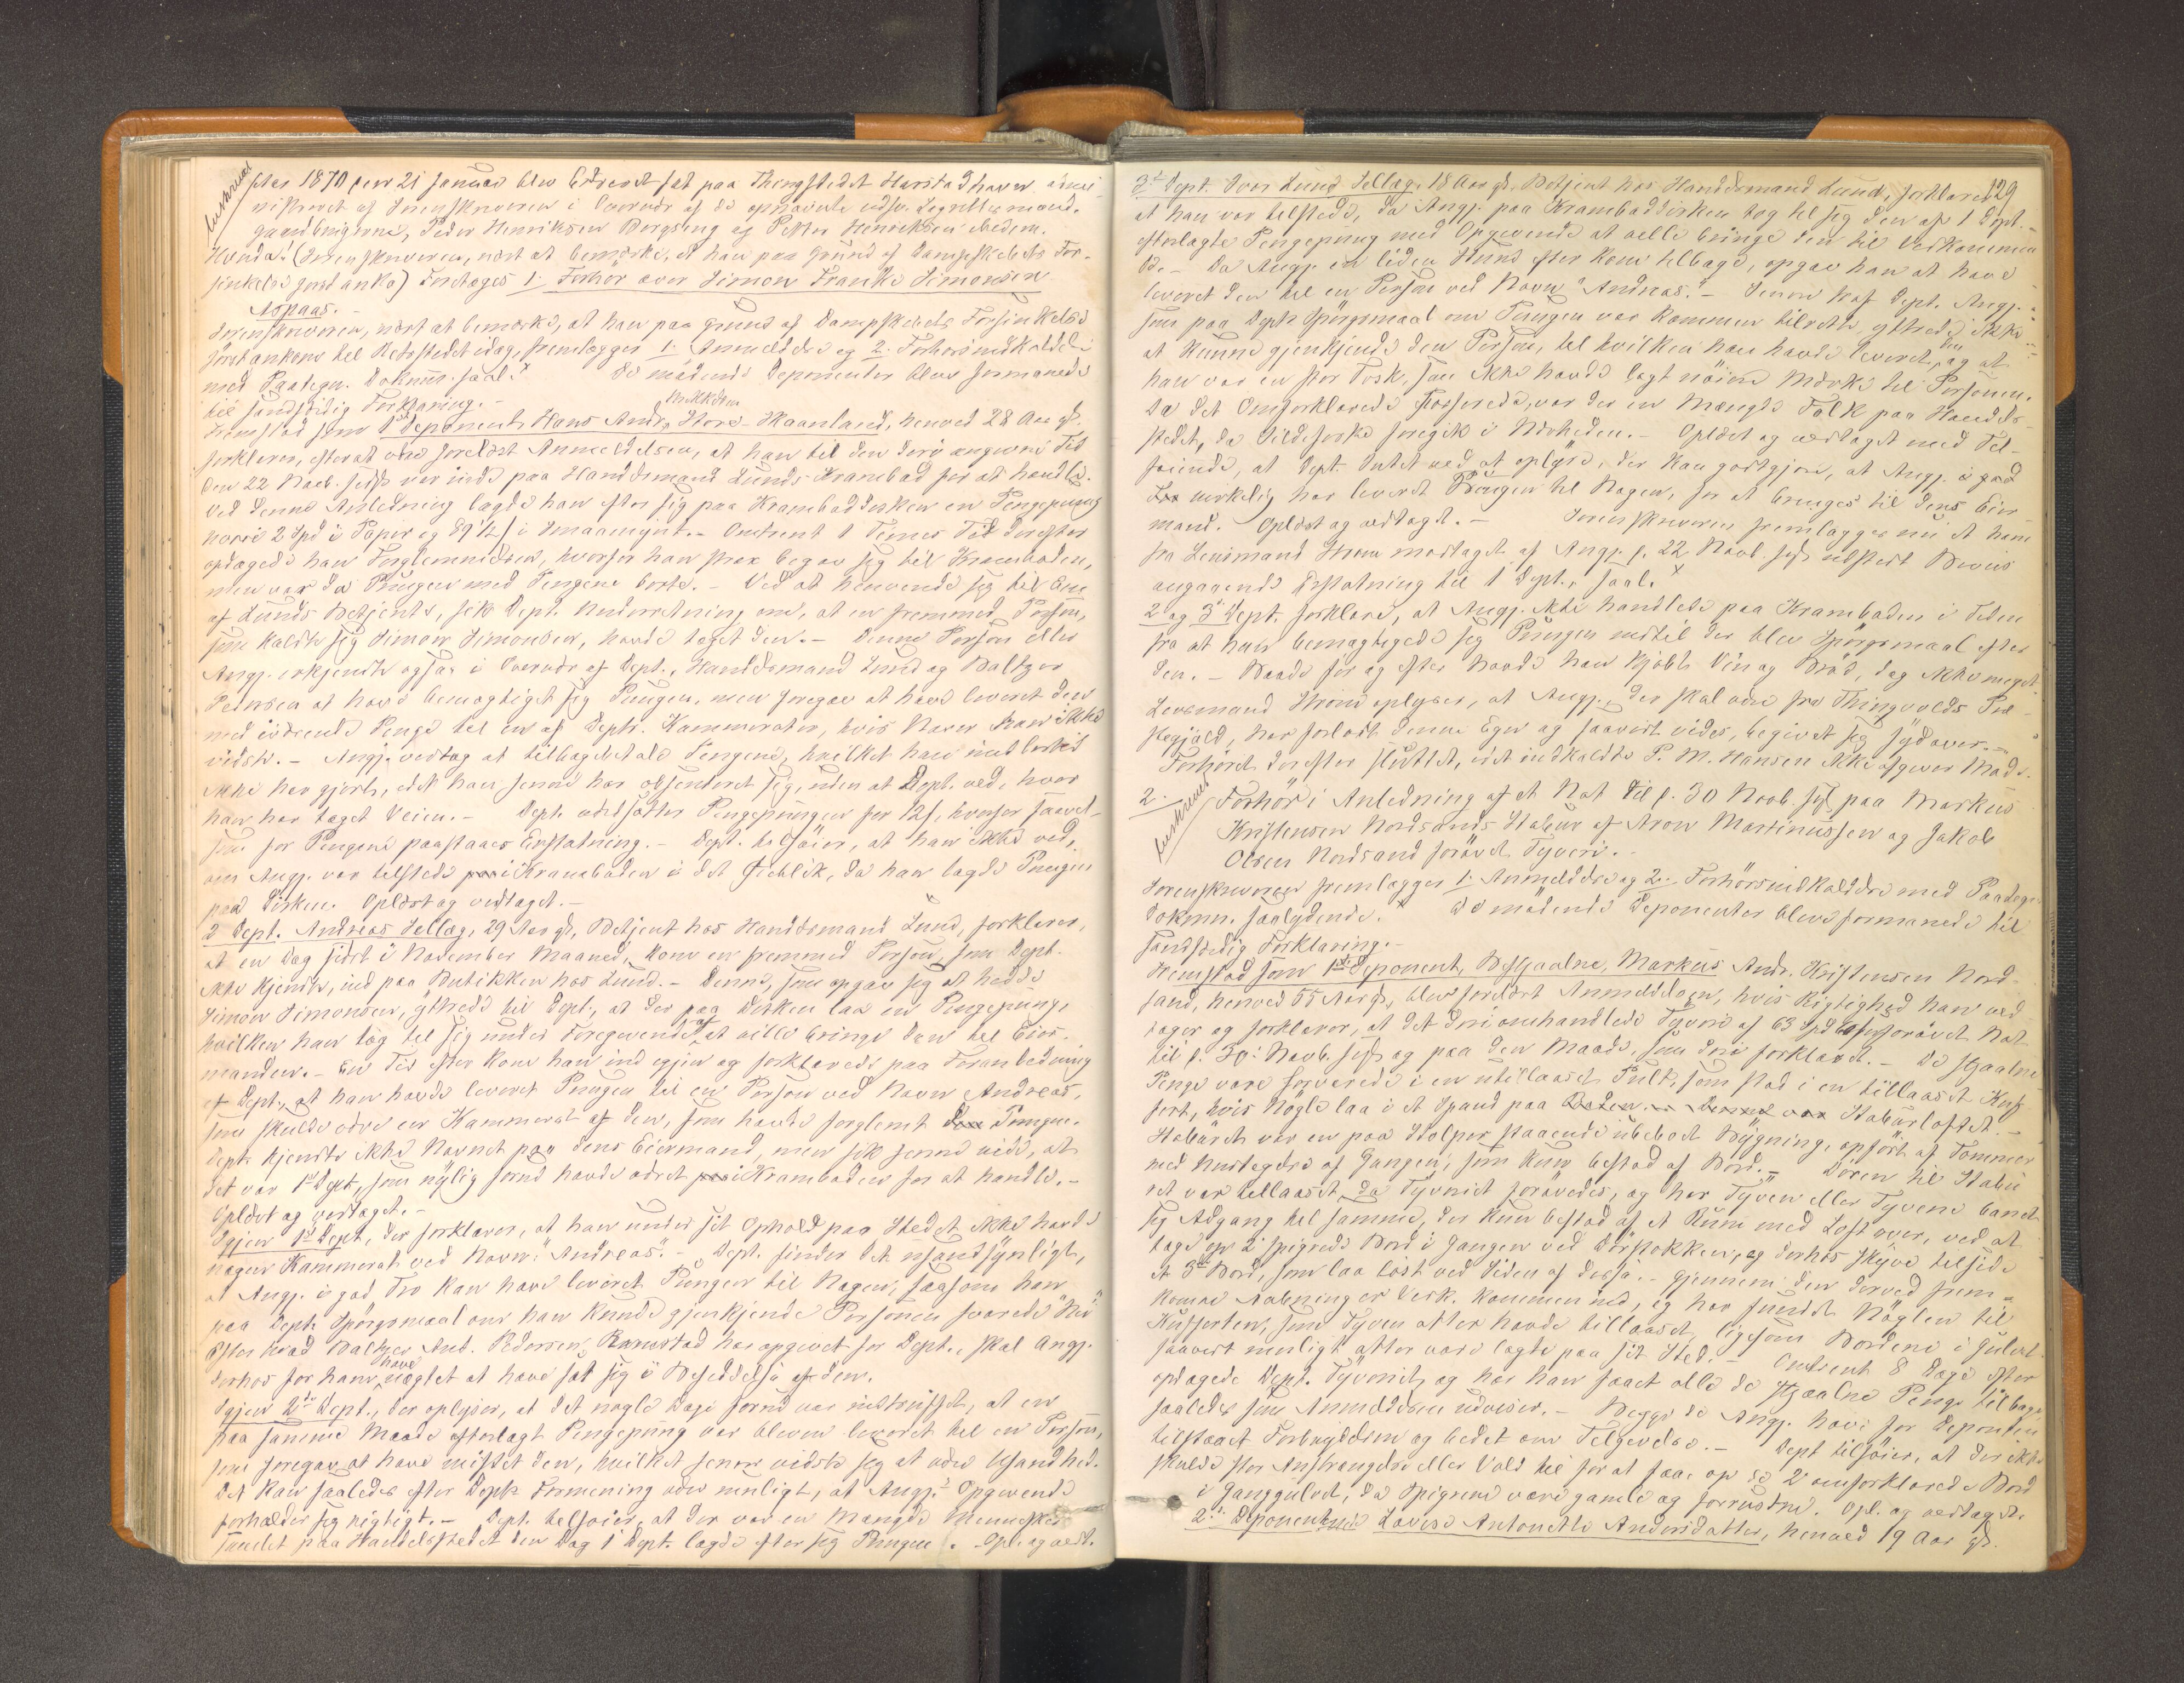 Uuskreven
Aar 1870 den 21 Januar blev Extraret sat paa Thingstedet Harstadhavn admi-
nistreret af Sorenskriveren i Overvær af de opnævnte edsv. Lagrettesmænd,
gaardbrugerne, Peder Henriksen Bergseng og Petter Henriksen ibidem.
Hvorda: (Sorenskriveren, næst at bemærke, at han paa Grund af Dampskibets For-
sinkelse først anko) Foretoges 1. Forhør over Simon Franks Simonsen
Aspaas. -
Sorenskriveren, næst at bemærke, at han paa Grund af Dampskibets Forsinkelse
først ankom til Retsstedet idag, fremlægger 1. Anmeldelse og 2. Forhørsindkaldelse
med Paategn. Dokum. saal. x De mødende Deponenter blev formanede
til sandfærdig Forklaring. -
Fremstod som 1ste Deponent Hans Andr. Mikkelsen Store-Skaanland, henved 28 Aar gl.
forklarer, efterat være forelæst Anmeldelsen, at han til den deri angivne Tid
den 22 Novb. sidstl. var inde paa Handelsmand Lunds Krambod for at handle.
Ved denne Anledning lagde han efter sig paa Krambodsdisken en Pengepung
hvori 2 Spd i Papir og 89½ s i Smaamynt. - Omtrent 1 Times Tid derefter
opdagede han Forglemmelsen, hvorfor han strax begav sig til Kramboden,
men var da Pungen med Pengene borte. - Ved at henvende sig til Een
af Lunds Betjente, fik Dept. Underretning om, at en fremmed Person,
som kaldte sig Simon Simonsen, havde taget den. - Denne Person eller
Angj. erkjendte ogsaa i Overvær af Dept., Handelsmand Lund og Baltzer
Pedersen at have bemægtiget sig Pungen, men foregav at have leveret den
med iværende Penge til en af Depts. Kammerater, hvis Navn han ikke
vidste. - Angj. vedtog at tilbagebetale Pengene, hvilket han imidlertid
ikke har gjort, idet han senere har absenteret sig, uden at Dept. ved, hvor
han har taget Veien. - Dept. værdsætter Pengepungen for 12 s, hvorfor saavel-
som for Pengene paastaaes Erstatning. - Dept. tilføier, at han ikke ved,
om Angj. var tilstede i Kramboden i det Øieblik, da han lagde Pungen
paa Disken. Oplæst og vedtaget. -
2 Dept. Andreas Sellæg, 29 Aar gl., Betjent hos Handelsmand Lund, forklarer,
at en Dag sidst i November Maaned, kom en fremmed Person, som Dept.
ikke kjendte, ind paa Butikken hos Lund. - Denne, som opgav sig at hedde
Simon Simonsen, ytrede til Dept., at der paa Disken laa en Pengepung,
hvilken han tog til sig under Foregivende af at ville bringe den til Eier-
manden. - En Tid efter kom han ind igjen og forklarede paa Foranledning
af Dept., at han havde leveret Pungen til en Person ved Navn Andreas,
som skulde være en Kammerat af den, som havde forglemt Pungen.
Dept. kjendte ikke Navnet paa dens Eiermand, men fik senere vide, at
det var 1ste Dept., som nylig forud havde været i Kramboden for at handle. -
Oplæst og vedtaget. -
Igjen 1ste Dept., der forklarer, at han under sit Ophold paa Stedet ikke havde
nogen Kammerat ved Navn: "Andreas". - Dept. finder det usandsynligt,
at Angj. i god Tro kan have leveret Pungen til Nogen, saasom han
paa Depts. Spørgsmaal om han kunde gjenkjende Personen svarede "Nei"
Efter hvad Baltzer Ant. Pedersen, Ramstad har opgivet for Dept., skal Angj.
derhos for ham have nægtet at have sat sig i Besiddelse af den.
Igjen 2den Dept., der oplyser, at det nogle Dage forud var indtruffet, at en
paa samme Maade efterlagt Pengepung var bleven leveret til en Person,
som foregav at have mistet den, hvilket senere vidste sig at være Usandhed.
Det kan saaledes efter Depts. Formening være muligt, at Angj.s Opgivende
forholder sig rigtigt. - Dept. tilføier, at der var en Mængde Mennesker
samlet paa Handelsstedet den Dag 1 Dept. lagde efter sig Pungen. Opl. og vedt.
129
3die Dept. Iver Lund Sellæg, 18 Aar gl. Betjent hos Handelsmand Lund, forklarede
at han var tilstede, da Angj. paa Krambodsdisken tog til sig den af 1 Dept.
efterlagte Pengepung med Opgivende at ville bringe den til Vedkommen-
de. - Da Angj. en liden Stund efter kom tilbage, opgav han at have
leveret den til en Person ved Navn "Andreas". - Senere traf Dept. Angj.
som paa Depts. Spørgsmaal om Pungen var kommen tilrette, yttrede ikke
at kunne gjenkjende den Person, til hvilken han havde leveret den, og at
han var en stor Tosk, som ikke havde lagt nøiere Mærke til Personen.
Da det Omforklarede passerede, var der en Mængde Folk paa Handels-
stedet, da Sildefiske foregik i Nærheden. - Oplæst og vedtaget med Til-
føiende, at Dept. Intet ved at oplyse, der kan godtgjøre, at Angj. i god
Tro virkelig har leveret Pungen til Nogen, for at bringes til dens Eier-
mand. Oplæst og vedtaget. - Sorenskriveren fremlægger nu et ham
fra Lensmand Strøm modtaget af Angj. p. 22 Novb. sidstl. udstedt Beviis
angaaende Erstatning til 1 Dept., saal. x
2 og 3die Dept. forklare, at Angj. ikke handlede paa Kramboden i Tiden
fra at han bemægtigede sig Pungen indtil der blev Spørgsmaal efter
den. - Baade før og efter havde han kjøbt Viin og Brød, dog ikke meget.
Lensmand Strøm oplyser, at Angj., der skal være fra Thingvolds Præ-
stegjeld, har forladt denne Egn og saavidt vides, begivet sig sydover. -
Forhøret derefter sluttet, idet indkaldte P. M. Hansen ikke afgiver Møde.
2.
Uuskreven
Forhør i Anledning af et Nat til p. 30 Novb. sidstl. paa Markus
Kristensen Nordsands Stabur af Aron Martinussen og Jakob
Olsen Nordsand forøvet Tyveri. -
Sorenskriveren fremlægger 1. Anmeldelse og 2. Forhørsindkaldelse med Paategn.
Dokum. saalydende. x De mødende Deponenter bleve formanede til
sandfærdig Forklaring. -
Fremstod som 1ste Deponent, Bestjaalne, Markus Andr. Kristensen Nord-
sand, henved 55 Aar gl., blev forelæst Anmeldelsen, hvis Rigtighed han ved-
tager og forklarer, at det deri omhandlede Tyveri af 63 Spd er forøvet Nat
til p. 30: Novb. sidstl. og paa den Maade, som deri forklaret. - De stjaalne
Penge vare forvarede i en utillaaset Pult, som stod i en tillaaset Kuf-
fert, hvis Nøgle laa i et Spand paa Staburloftet. -
Staburet var en paa Stolper staaende ubeboet Bygning, opført af Tømmer
med Undtagelse af Gangen, som kun bestod af Bord. - Døren til Stabu-
ret var tillaaset, da Tyveriet forøvedes, og har Tyven eller Tyvene banet
sig Adgang til samme, der kun bestod af et Rum med Loft over, ved at
tage op 2 spigrede Bord i Gangen ved Dørstokken, og derhos skyve tilside
et 3die Bord, som laa løst ved Siden af disse. - Gjennem den derved frem-
komne Aabning er Vedk. kommen ind, og har fundet Nøglen til
Kufferten, som Tyven atter havde tillaaset, ligesom Bordene i Gulvet
saavidt muligt atter vare lagte paa sit Sted. - Omtrent 8 Dage efter
opdagede Dept. Tyveriet, og har han faaet alle de stjaalne Penge tilbage
saaledes som Anmeldelsen udviser. - Begge de Angj. have for Deponenten
tilstaaet Forbrydelsen og bedet om Tilgivelse. - Dept. tilføier, at der ikke
skulde stor Anstrængelse eller Vold til for at faae op de 2 omforklarede Bord
i Ganggulvet, da Spigrene vare gamle og forrustne. Opl. og vedtaget.
2den Deponentinde Lovise Antonette Andersdatter, henved 19 Aar gl.